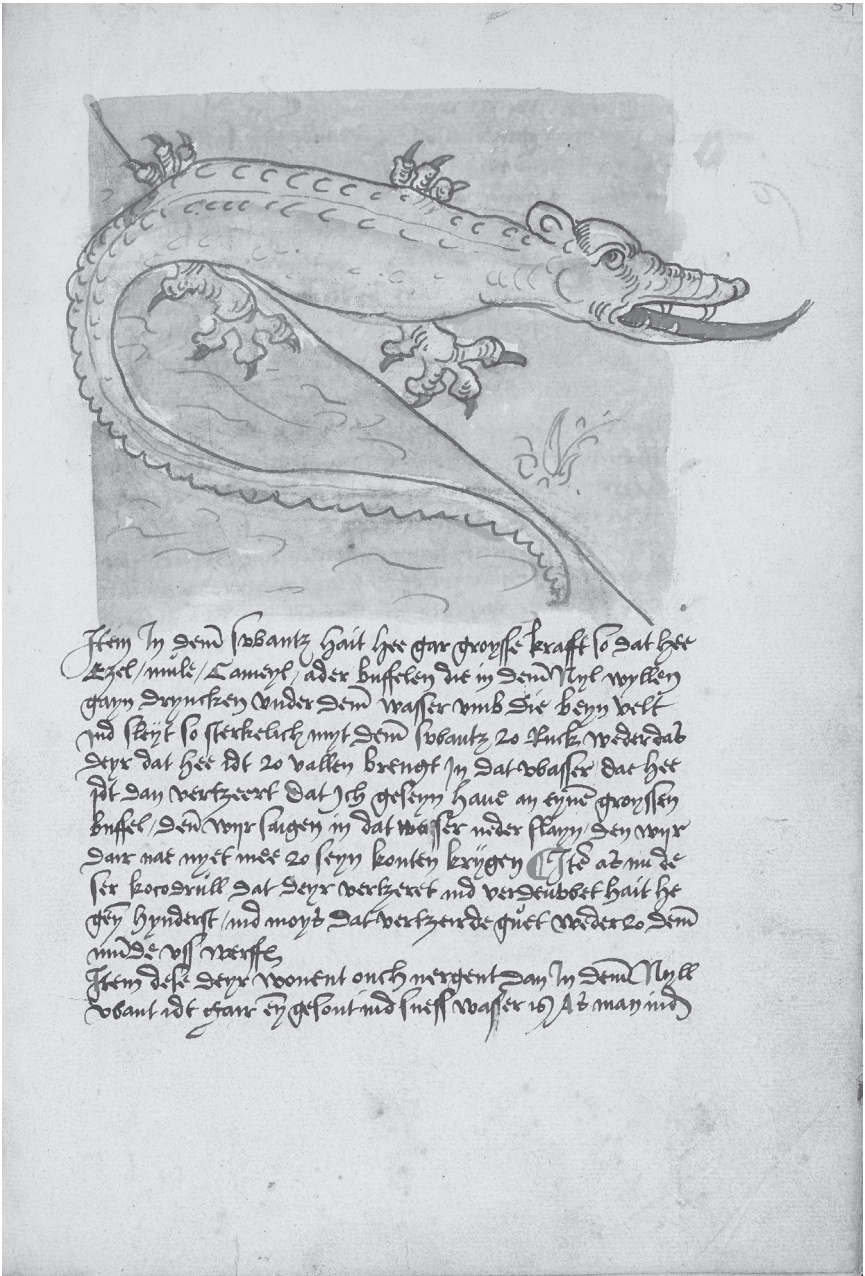 Item In dem̄ swantz hait hee gar groysse krafft so dat hee
Ezel / mule / Cameyl / ader buffelen die in dem̄ Nyl wyllen
gayn dryncken vnder dem̄ wasser vmb die beyn velt
ind sleyt so sterkelich myt dem̄ swantz zo Ruck weder dat
deyr dat hee idt zo vallen brengt In dat wasser dae hee
idt dan vertzeert dat Ich geseyn haue an eynē groyssen
buffel / den̄ wyr saigen in dat wasser neder slayn / den wyr
dair nae nyet mee zo seyn konten krygen Itē as nu de
ser kocodrill dat deyr vertzeret ind verdeuwet hait he
geyn hynderst / ind moys dat vertzeirde guet weder zo dem̄
mūde vss werffē
Item dese deyr wonent ouch nergent dan In dem̄ Nyll
want idt gair eȳ gesont ind suess wasser is As man ind